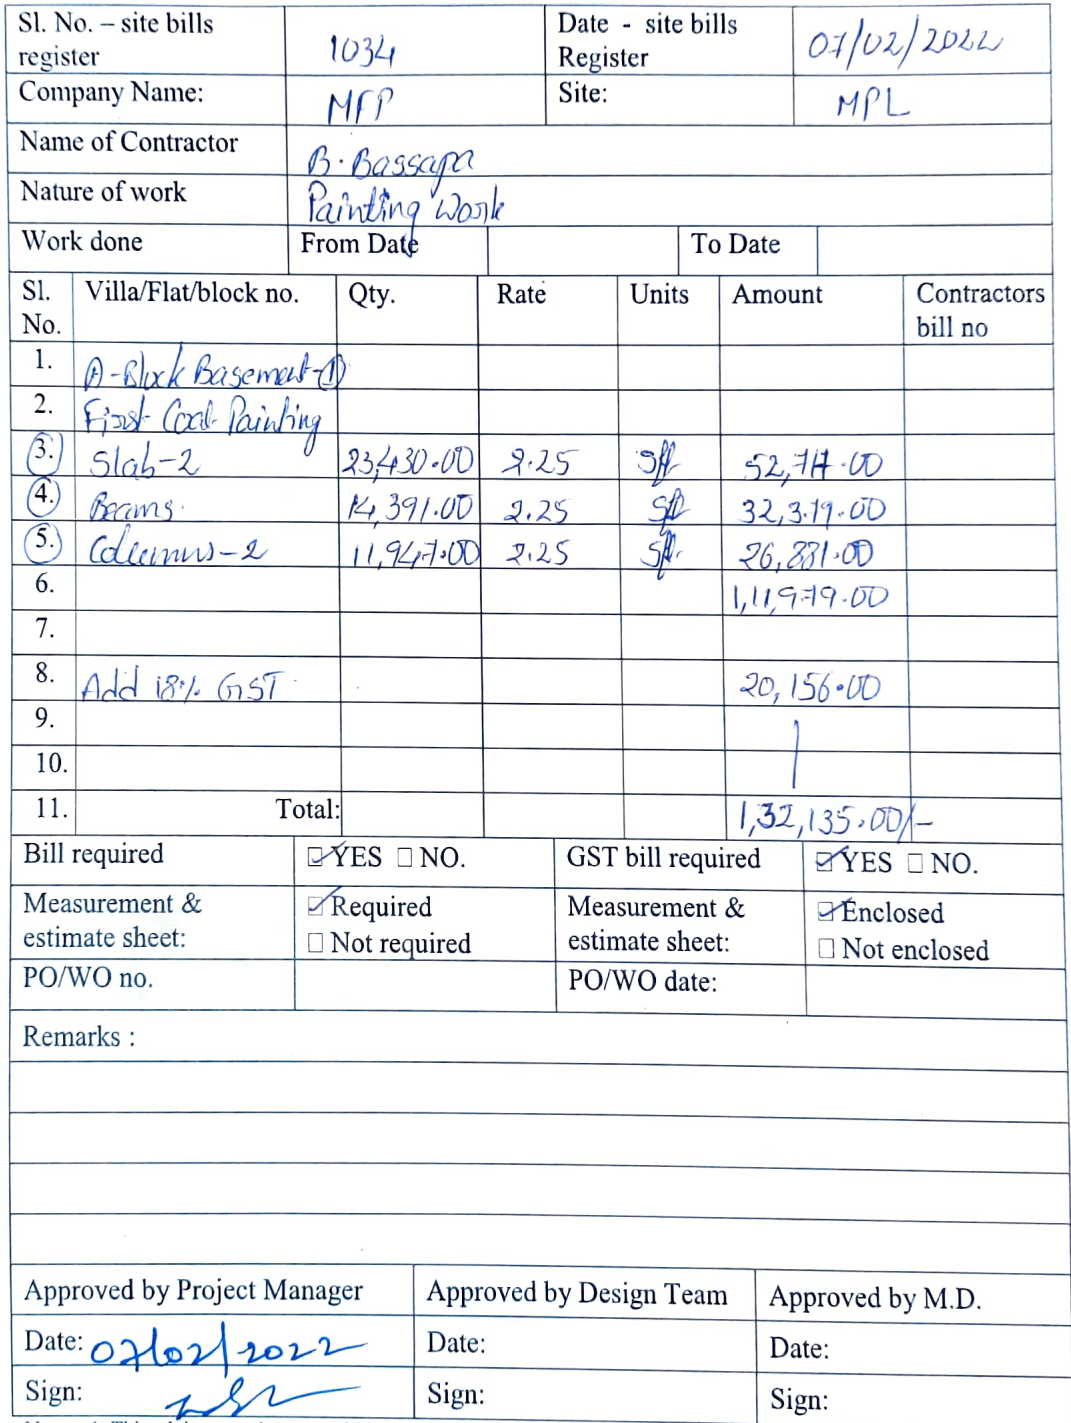 Sl. No. – site bills register 1034 Date - site bills Register 07/02/2022
Company Name: MFP Site: MPL
Name of Contractor B. Bassapa
Nature of work Painting Work
Work done From Date To Date
Sl. No. Villa/Flat/block no. Qty. Rate Units Amount Contractors bill no
1. A-Block Basement-1
2. First Coat Painting
3. Slab-2 23,430.00 2.25 sft 52,717.00
4. Beams. 14,391.00 2.25 sft 32,379.00
5. Columns-2 11,947.00 2.25 sft. 26,881.00
6. 1,11,979.00
7.
8. Add 18% GST 20,156.00
9.
10.
11. Total: 1,32,135.00/-
Bill required YES NO. GST bill required YES NO.
Measurement & estimate sheet: Required Not required Measurement & estimate sheet: Enclosed Not enclosed
PO/WO no. PO/WO date:
Remarks :
Approved by Project Manager Approved by Design Team Approved by M.D.
Date: 07/02/2022 Date: Date:
Sign: Sign: Sign: